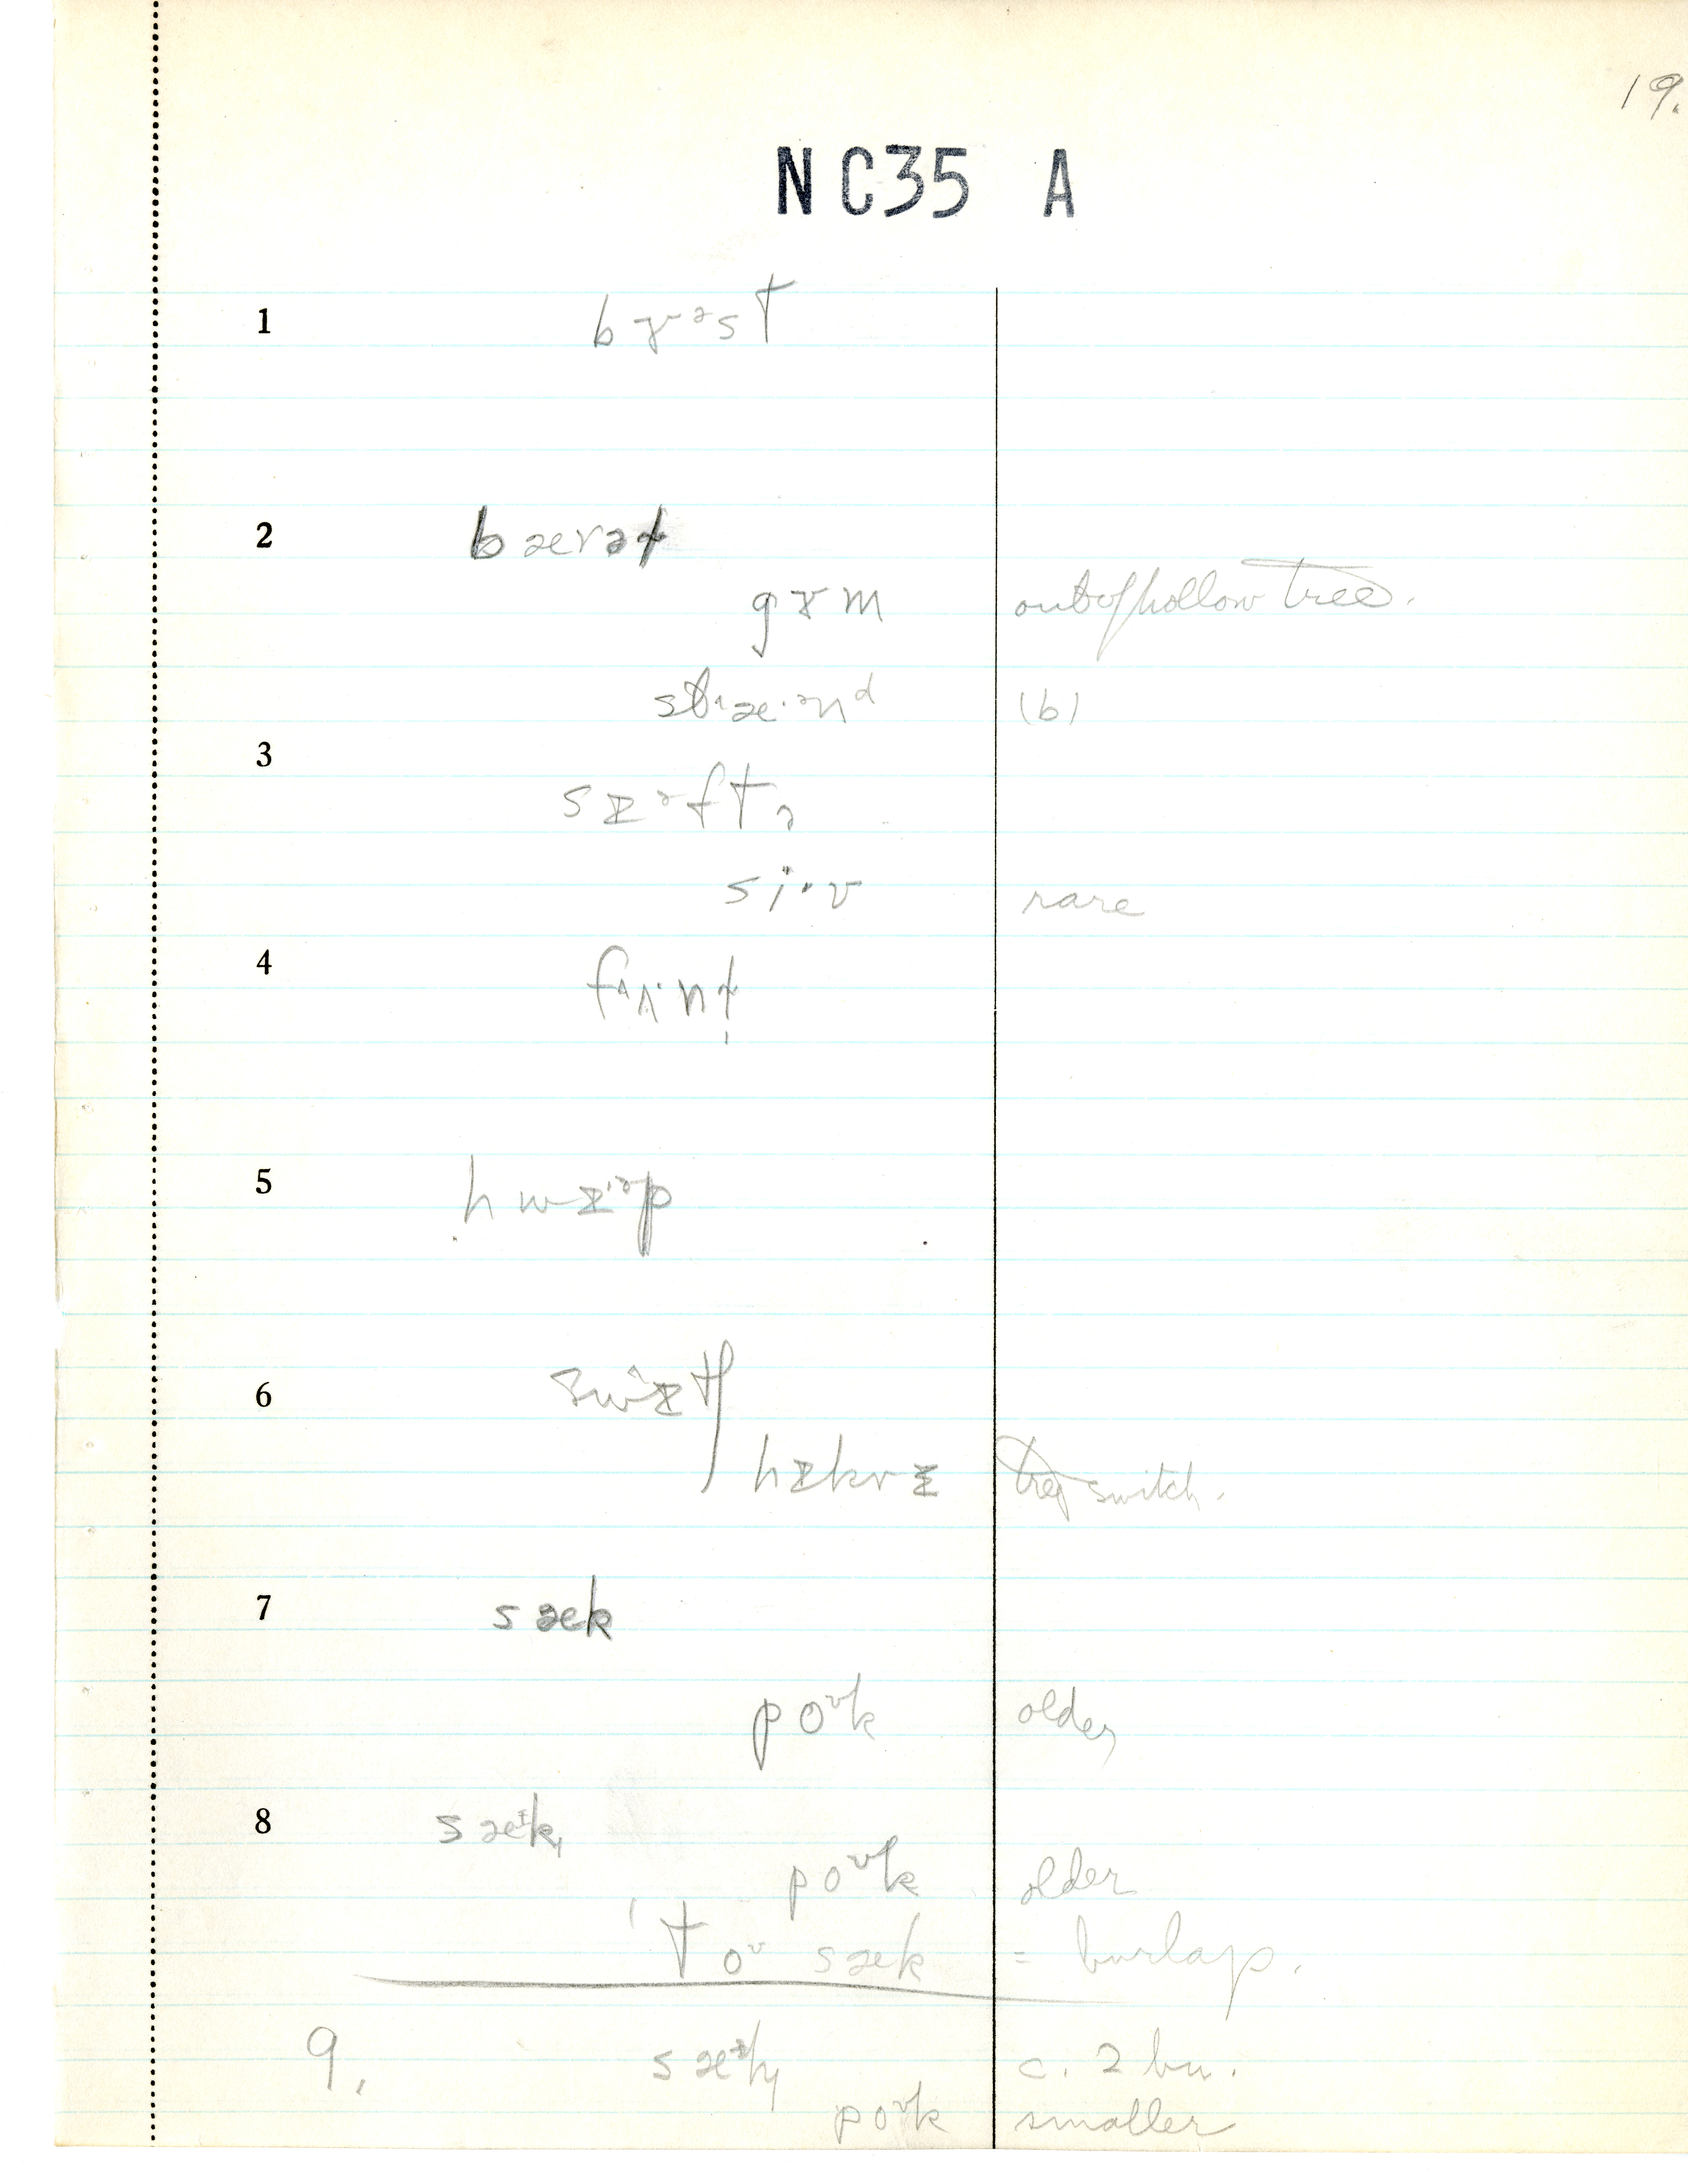 19.
NC35 A
1 bɤᵊst
2 bærəɫ
gɤm out of hollow tree.
stræ·ənᵈ (b)
3 sɪᵊftə
si·v rare
4 fʌ·nɫ
5 hwɪ·ᵊp
6 swɪtʃ
hɪkrɪ tree switch.
7 sæk
poᵘk older
8 sæᶦk
poᵘk older
'toᵘ sæk = burlap.
9. sæᶦk c. 2 bu.
poᵘk smaller